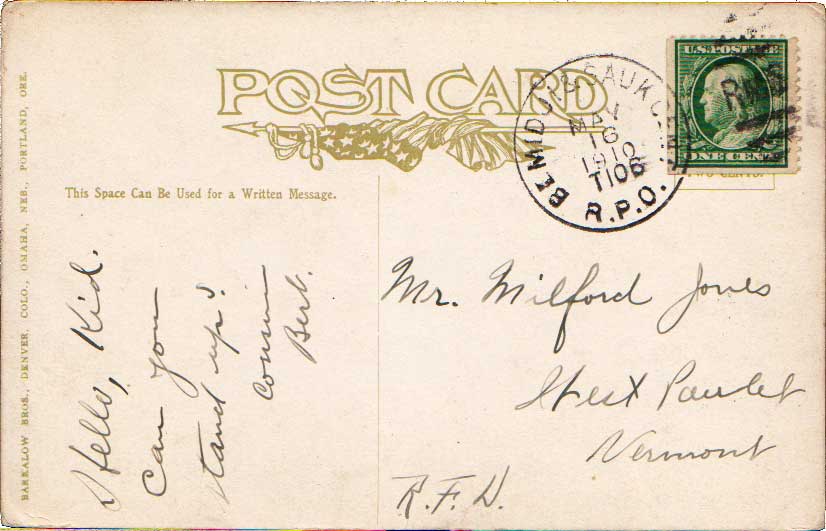 POST CARD
U.S. POSTAGE
ONE CENT
TWO CENTS.
BEMIDJI & SAUK CENT.
MAY
16
1910
T106
R.P.O.
RMS
This Space Can Be Used for a Written Message.
Hello, Kid.
Can you
stand up?
Cousin
Bert.
Mr. Milford Jones
West Pawlet
Vermont
R.F.D.
BARKALOW BROS., DENVER, COLO., OMAHA, NEB., PORTLAND, ORE.